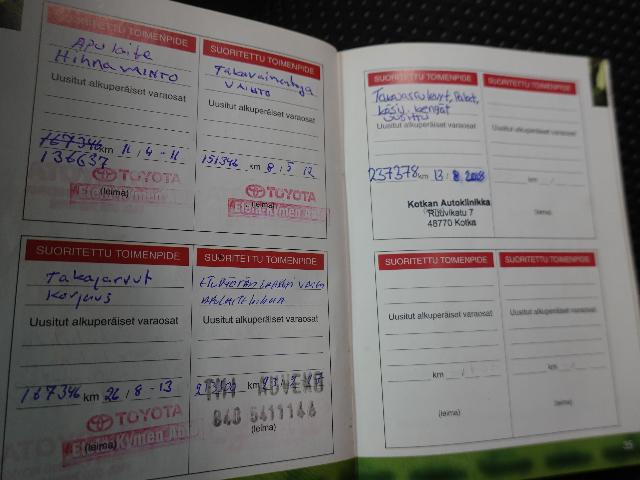 SUORITETTU TOIMENPIDE
Apulaite
Hihna VAIHTO
Uusitut alkuperäiset varaosat
167346 km 11 / 4 - 11
136637
TOYOTA
Etelä-Kymen
(leima)
SUORITETTU TOIMENPIDE
VAIHTO
Uusitut alkuperäiset varaosat
151346 km 8 / 5 12
TOYOTA
Etelä-Kymen
(leima)
SUORITETTU TOIMENPIDE
Takajarrut
Korjaus
Uusitut alkuperäiset varaosat
167346 km 26 / 8 - 13
TOYOTA
Etelä-Kymen
(leima)
SUORITETTU TOIMENPIDE
Uusitut alkuperäiset varaosat
km
840 5411144
(leima)
SUORITETTU TOIMENPIDE
Uusitut alkuperäiset varaosat
237378 km 13
Kotkan Autoklinikka
Rutivikatu 7
48770 Kotka
SUORITETTU TOIMENPIDE
Uusitut alkuperäiset varaosat
km
(leima)
SUORITETTU TOIMENPIDE
Uusitut alkuperäiset varaosat
km
(leima)
SUORITETTU TOIMENPIDE
Uusitut alkuperäiset varaosat
km
(leima)
35